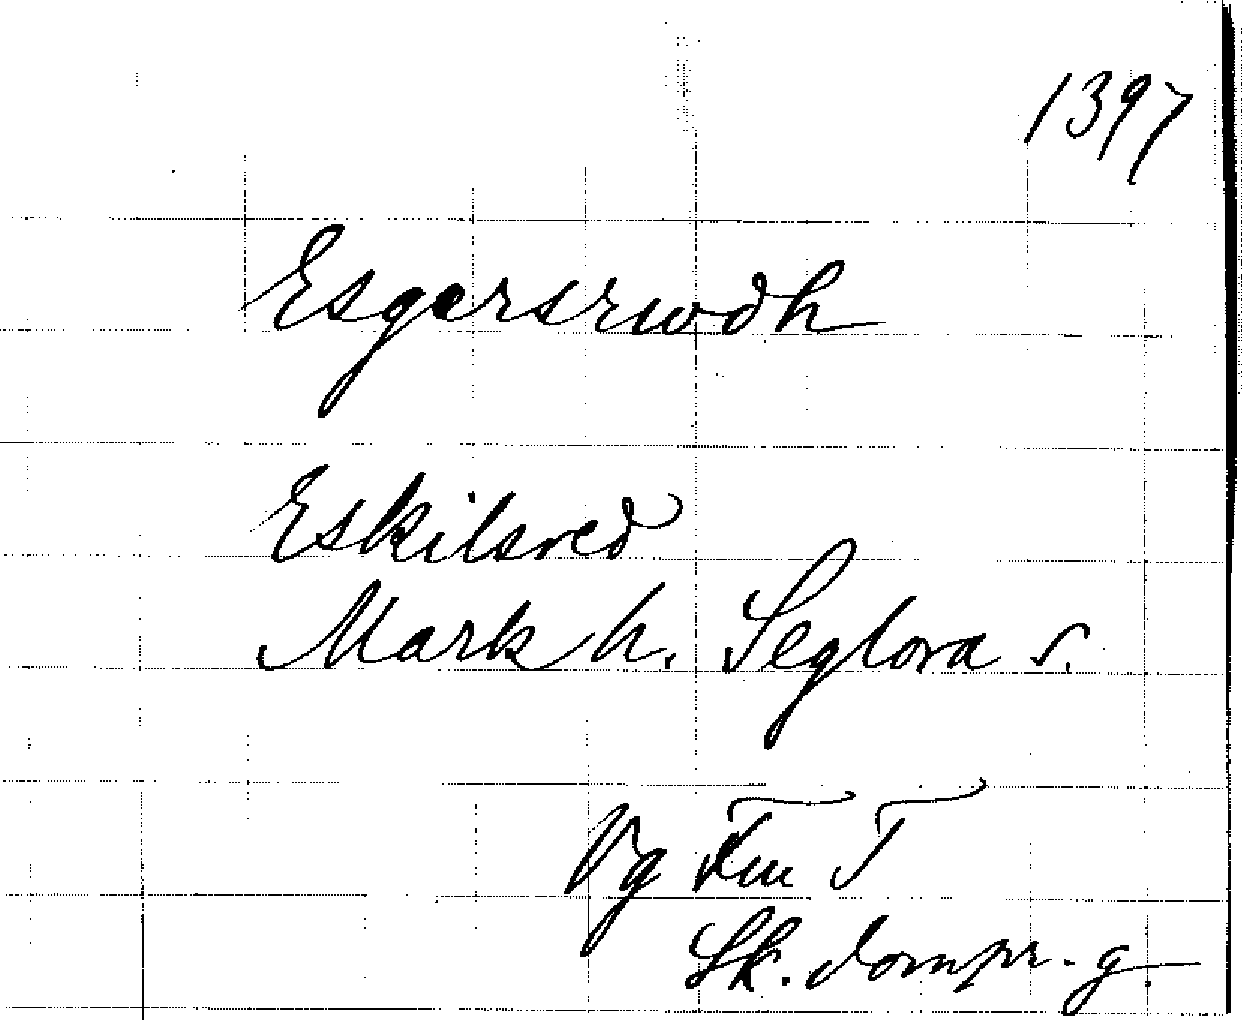 1397
Esgersrwdh
Eskilsred
Mark h. Seglora s.
Vg Fm T
Sk. dompr. g.